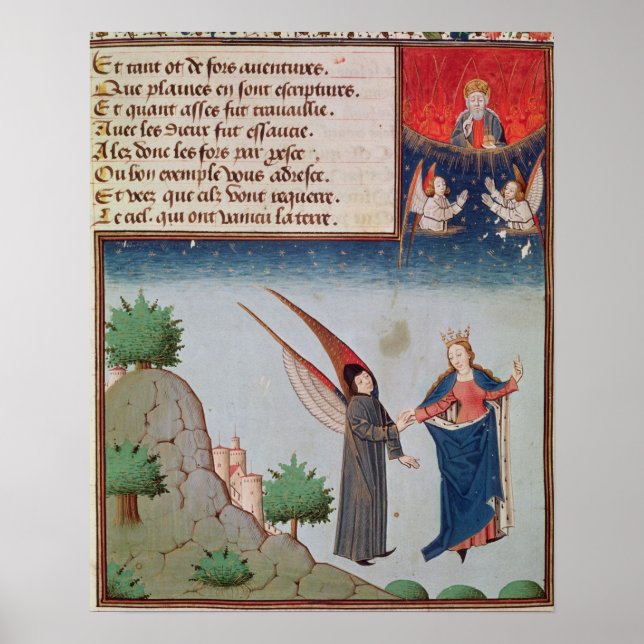 Et tant ot de fors auentures.
Que plaines en sont escriptures.
Et quant asses fut trauaillie.
Auec les dieux fut essaucie.
Alez donc les fors par gesce
Ou bon exemple vous adresce.
Et veez que cilz vont requerre.
Le ciel. qui ont vaincu la terre.